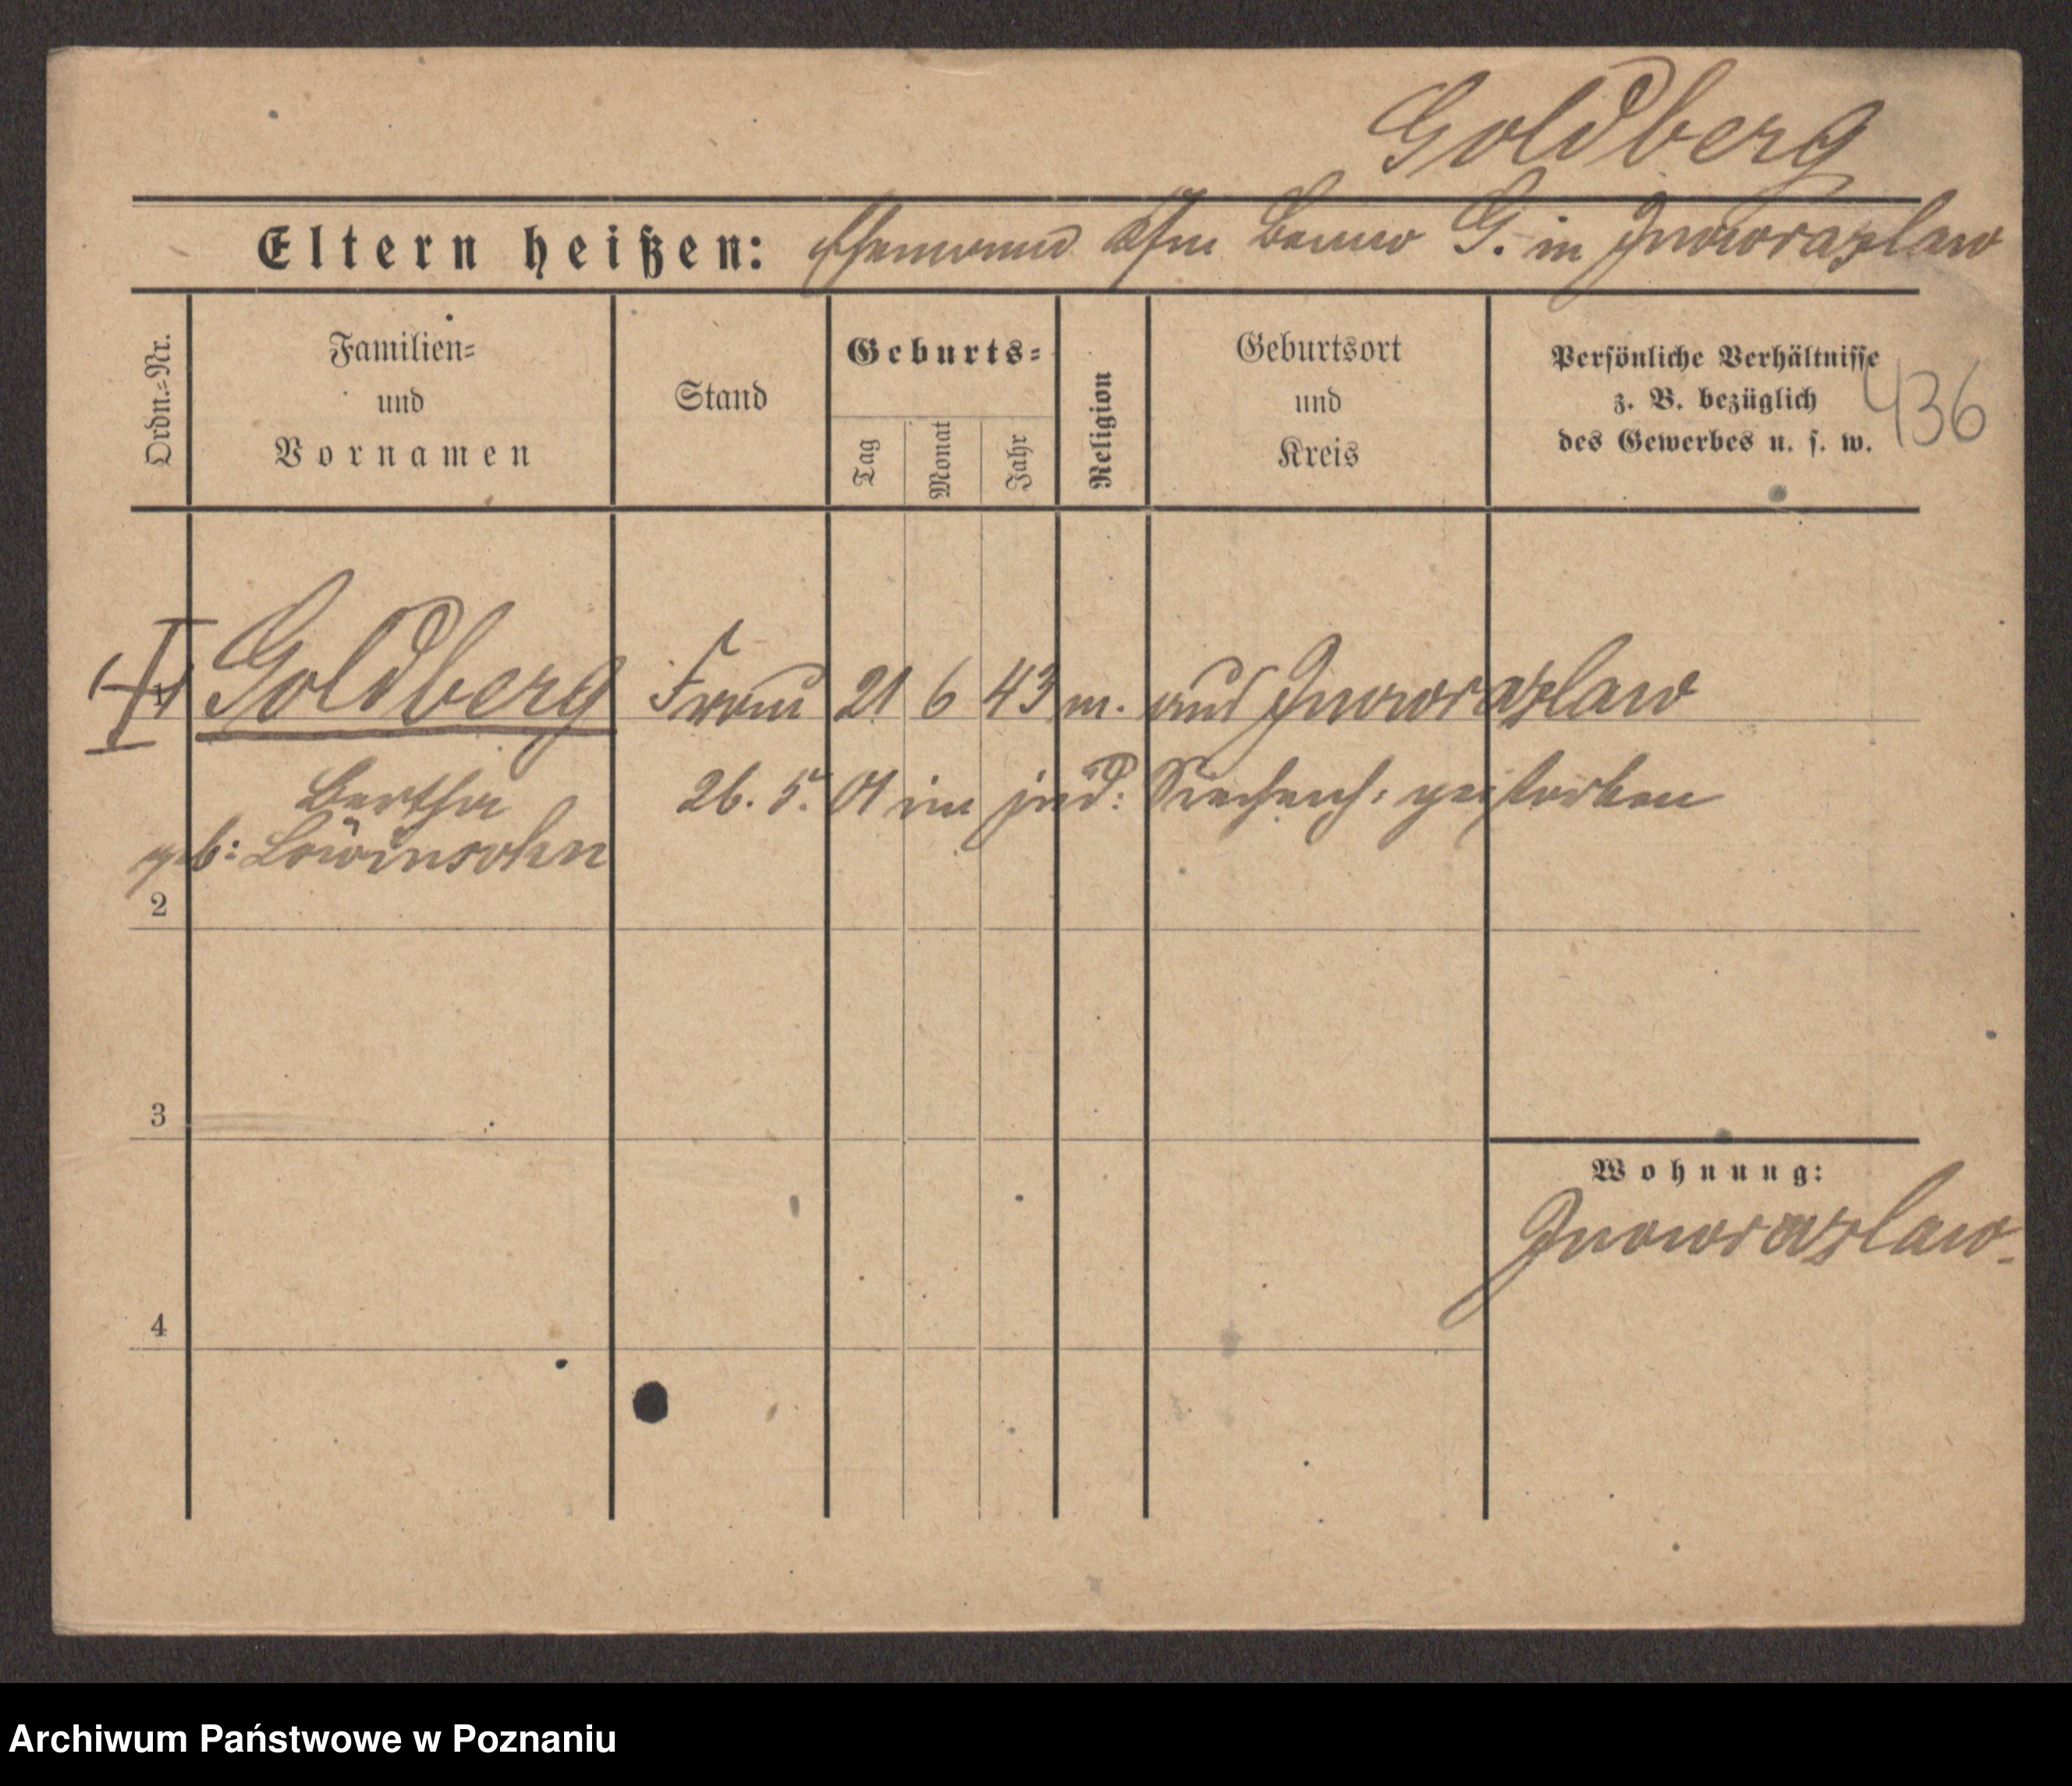 Goldberg
Eltern heißen: Ehemann Kfm Benno G. in Inowrazlaw
Ordn.=Nr.
Familien=
und
Vornamen
Stand
Geburts=
Tag
Monat
Jahr
Religion
Geburtsort
und
Kreis
Persönliche Verhältnisse
z. B. bezüglich
des Gewerbes u. s. w.
436
Goldberg Frau 21 6 43 m. aus Inowrazlaw
Bertha 26. 5. 01 im jüd: gestorben
geb: Löwinsohn
2
3
Wohnung:
Inowrazlaw.
4
Archiwum Państwowe w Poznaniu